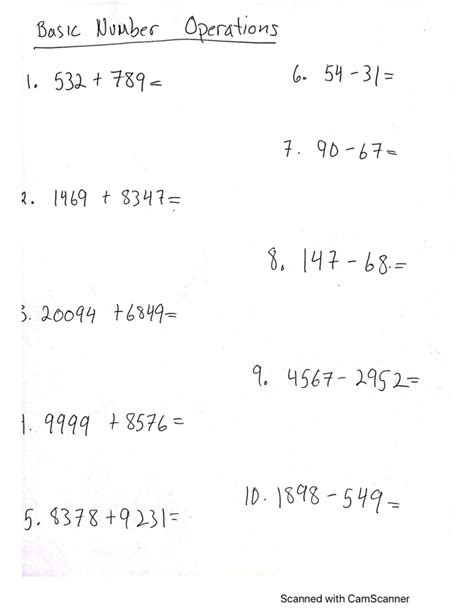 Basic Number Operations
1. 532 + 789 =
6. 54 - 31 =
7. 90 - 67 =
2. 1469 + 8347 =
8. 147 - 68 =
3. 20094 + 6849 =
9. 4567 - 2952 =
1. 9999 + 8576 =
10. 1898 - 549 =
5. 8378 + 9231 =
Scanned with CamScanner